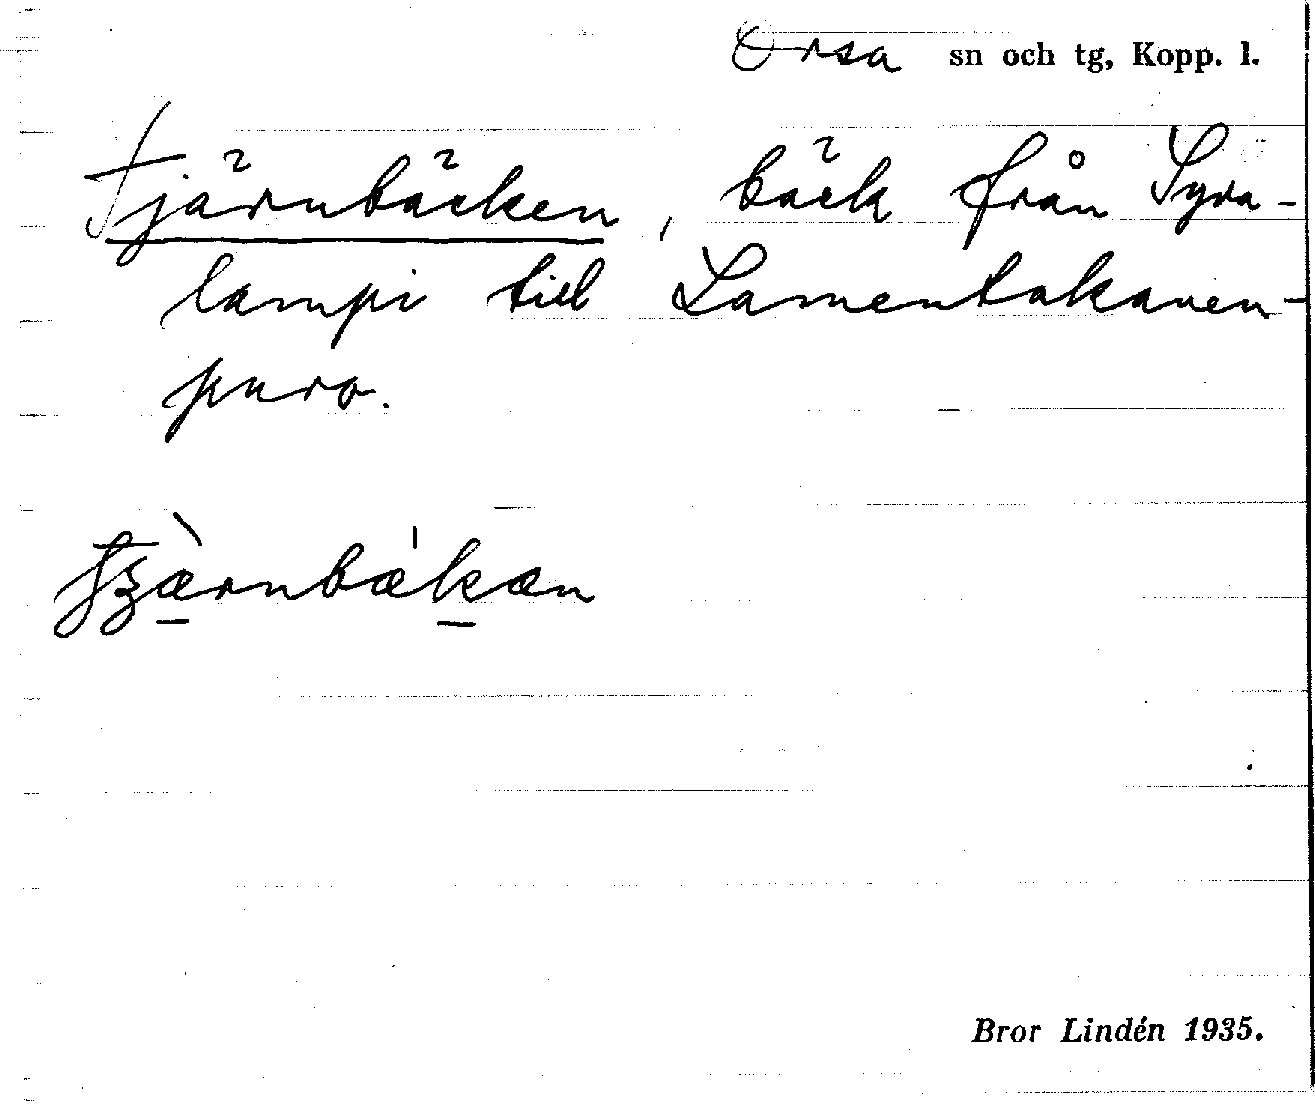 Orsa sn och tg, Kopp. l.
Tjärnbäcken, bäck från Syra-
lampi till Lamentakanen-
puro.
Bror Lindén 1935.